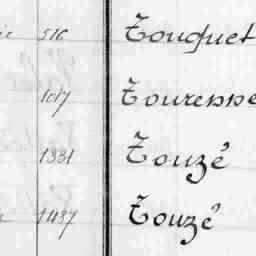 516 Touquet
1017 Toureppe
1331 Touzé
1437 Touzé